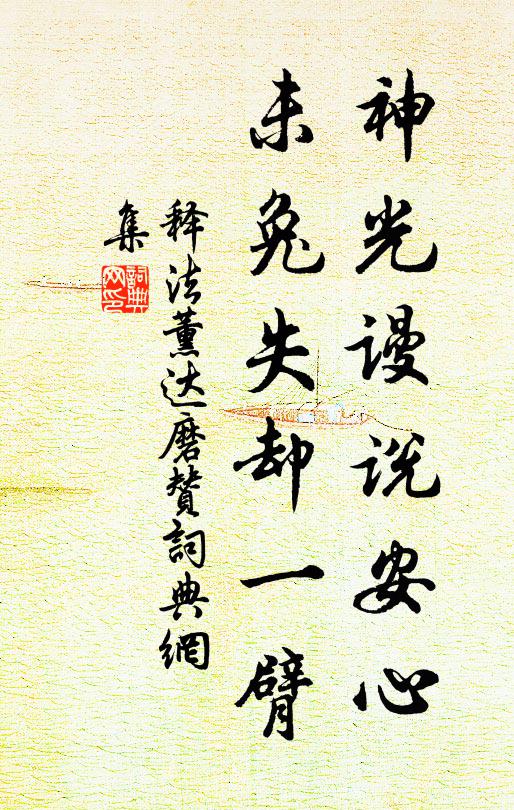 神光谩说安心
未免失却一臂
释法薰达磨赞詞典網
集
詞典网印